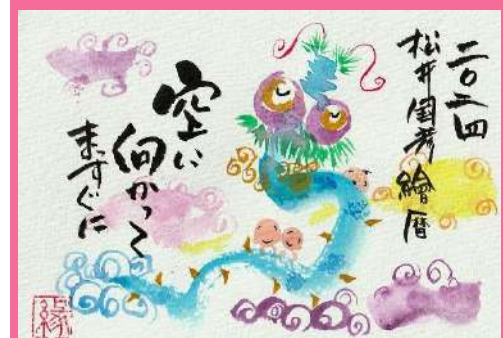 二〇二四
松井 繪暦
空に
向かって
まっすぐに
縁